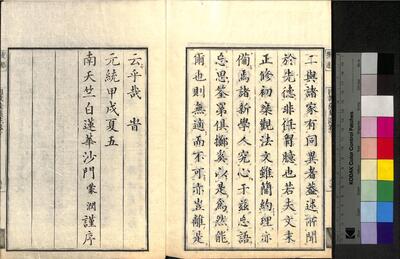 工與諸家有同異者蓋述所聞
於先德非任胷臆也若夫文末
正修初槖觀法文雖簡約理亦
備焉諸新學人究心于兹忘語
忘思筌罤俱擲奚以是爲然能
爾也則無適而不可亦豈離是
云乎哉 旹
元統甲戌夏五
南天竺白蓮華沙門蒙潤謹序
KODAK Color Control Patches